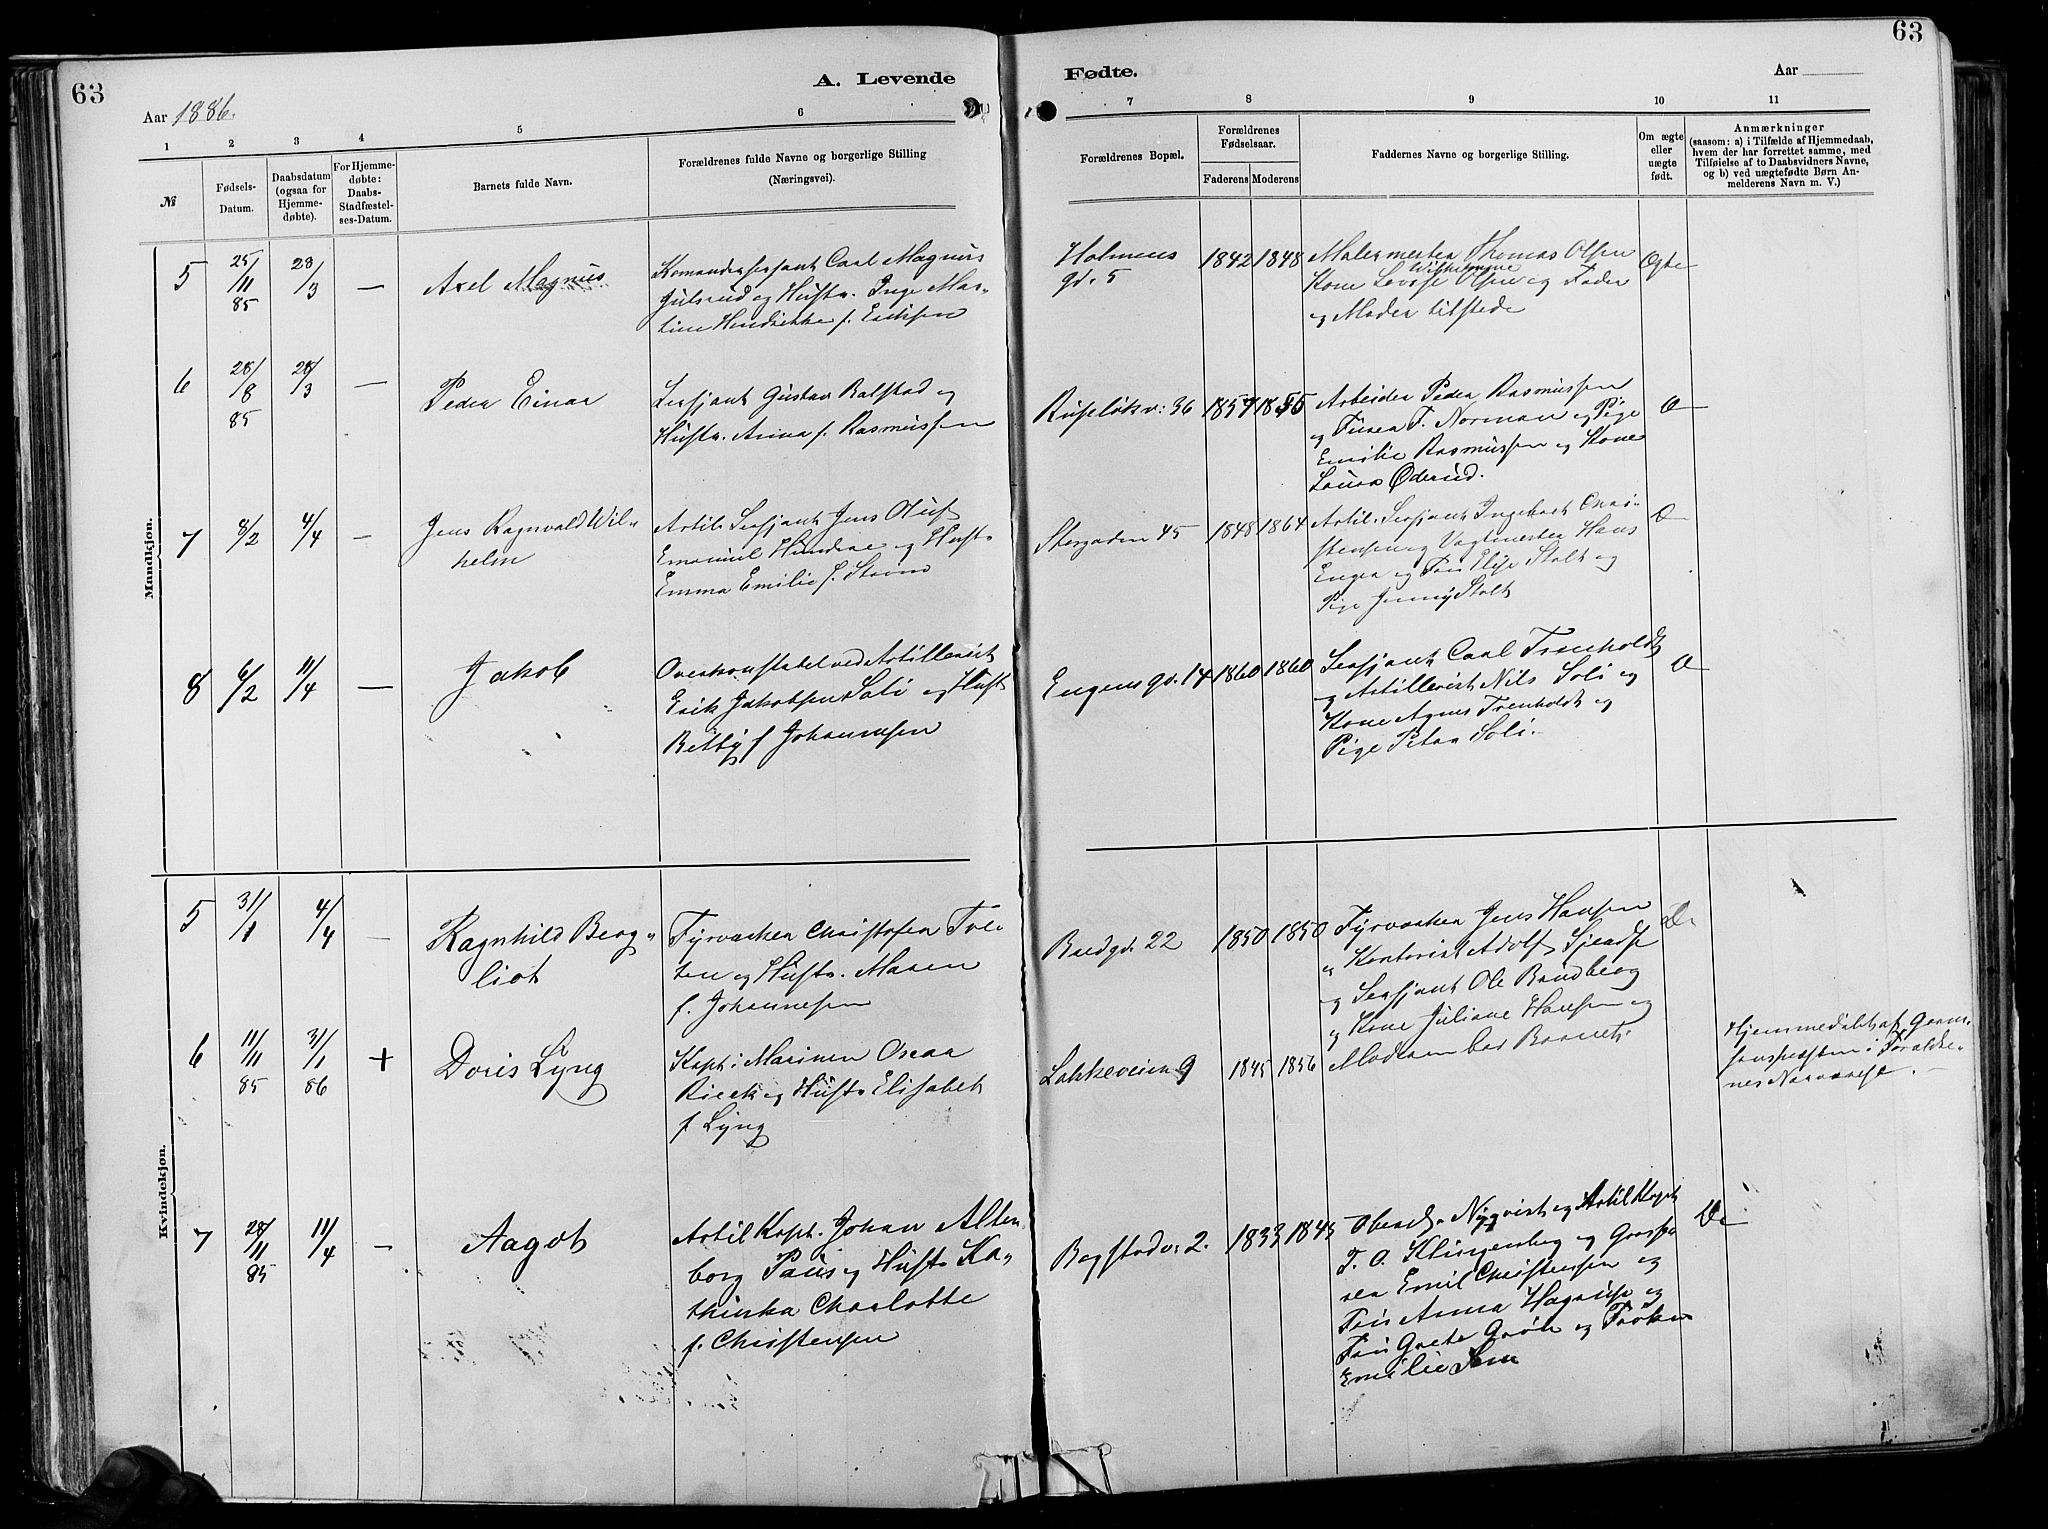 63
63
A. Levende
Fødte.
Aar 1886.
Aar
1
2
3
4
5
6
7
8
9
10
11
№
Fødsels-
Datum.
Daabsdatum
(ogsaa for
Hjemme-
døbte).
For Hjemme-
døbte:
Daabs-
Stadfæstel-
ses-Datum.
Barnets fulde Navn.
Forældrenes fulde Navne og borgerlige Stilling
(Næringsvei).
Forældrenes Bopæl.
Forældrenes
Fødselsaar.
Faderens
Moderens
Faddernes Navne og borgerlige Stilling.
Om ægte
eller
uægte
født.
Anmærkninger
(saasom: a) i Tilfælde af Hjemmedaab,
hvem der har forrettet samme, med
Tilføielse af to Daabsvidners Navne,
og b) ved uægtefødte Børn An-
melderens Navn m. V.)
Mandkjøn.
5
25/11
85
28/3
—
Axel Magnus
Komandersersjant Carl Magnus
Julsrud og Hustr. Inge Mar-
tine Hendrikke f. Eriksen
Holmens
gd. 5
1842
1848
Malermester Thomas Olsen
Wilhelmine
Kone Lovise Olsen og Fader
og Moder tilstede
Ægte
6
28/8
85
28/3
—
Peder Einar
Sersjant Gustav Balstad og
Hustr. Anna f. Rasmussen
Ruseløkv. 36
1857
1855
Arbeider Peder Rasmussen
og Furer F. Norman og Pige
Emilie Rasmussen og Kone
Laura Øderud.
Æ
7
8/2
4/4
—
Jens Ragnvald Wil-
helm
Artil. Sersjant Jens Oluf
Emanuel Hundre og Hust.
Emma Emilie f. Strøm
Storgaden 45
1848
1864
Artil. Sersjant Ingebret Chri-
stensen og Vagtmester Hans
Enger og Fru Elise Stolt og
Pige Jenny Stolt
Æ
8
6/2
11/4
—
Jakob
Overkonstabel ved Artilleriet
Erik Jakobsen Soli og Hust
Betty f Johannesen
Engens gd. 14
1860
1860
Sersjant Carl Trenholdt
og Artillerist Nils Soli og
Kone Agnes Trenholdt og
Pige Petra Soli.
Æ
Kvindekjøn.
5
31/1
4/4
—
Ragnhild Berg-
liot
Fyrvarker Christofer Tol-
ten og Hustr. Maren
f. Johannesen
Bredgd. 22
1850
1850
Fyrvarker Jens Hansen
og Kontorist Adolf
og Sersjant Ole Brudberg
og Kone Juliane Hansen og
Modteren bar Barnet.
Æ
6
11/11
85
31/1
86
+
Doris Lyng
Kapt. i Marinen Oscar
Rieck og Hustr Elisabet
f Lyng
Løkkeveien 9
1845
1856
Hjemmedøbt af Garni-
sonspræsten i Forældre-
nes Nærværelse.
7
28/11
85
11/4
—
Aagot
Artil Kapt. Johan Alten
borg Paus og Hustr Ka-
thinka Charlotte
f. Christensen
Bogstadv. 2.
1833
1845
Oberstl. Nyqvist og Artil Kapt
F. O. Klingenberg og Grosse-
rer Emil Christensen og
Fru Anna Hagrup og
Fru Grete Grøn og Frøken
Emilie
Æ